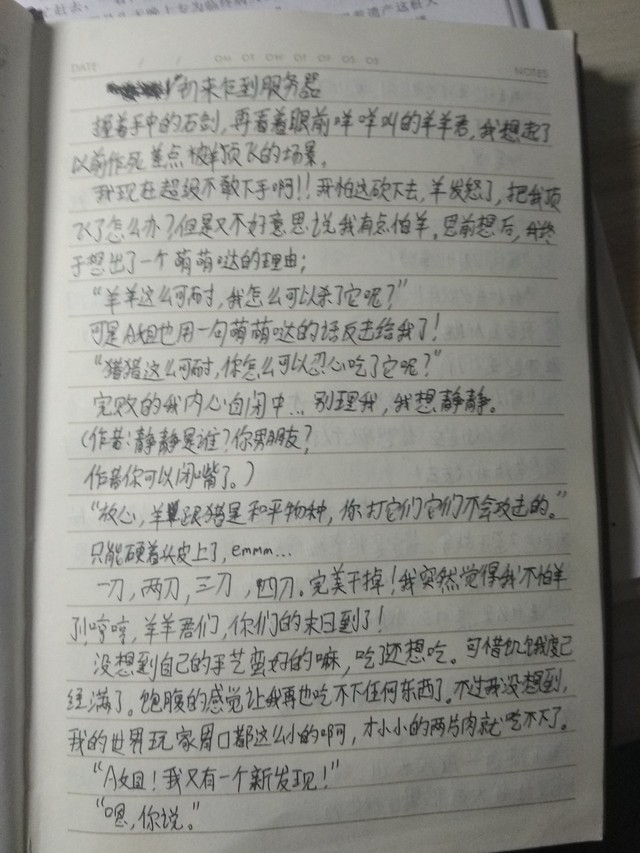 DATE / /
NOTES
初来乍到服务器
握着手中的石剑，再看着眼前咩咩叫的羊羊君，我想起了
以前作死差点被羊顶飞的场景。
我现在超级不敢下手啊!!我怕这砍下去，羊发怒了，把我顶
飞了怎么办？但是又不好意思说我有点怕羊。思前想后，我终
于想出了一个萌萌哒的理由；
“羊羊这么可耐，我怎么可以杀了它呢？”
可是A姐也用一句萌萌哒的话反击给我了！
“猪猪这么可耐，你怎么可以忍心吃了它呢？”
完败的我内心自闭中... 别理我，我想静静。
（作者：静静是谁？你男朋友？
作者你可以闭嘴了。）
“放心，羊跟猪是和平物种，你打它们它们不会攻击的。”
只能硬着头皮上了，emmm...
一刀，两刀，三刀，四刀。完美干掉！我突然觉得我不怕羊
了!哼哼，羊羊君们，你们的末日到了！
没想到自己的手艺蛮好的嘛，吃了还想吃。可惜饥饿度已
经满了。饱腹的感觉让我再也吃不下任何东西了。不过我没想到，
我的世界玩家胃口都这么小的啊，才小小的两片肉就吃不下了。
“A姐！我又有一个新发现！”
“嗯，你说。”